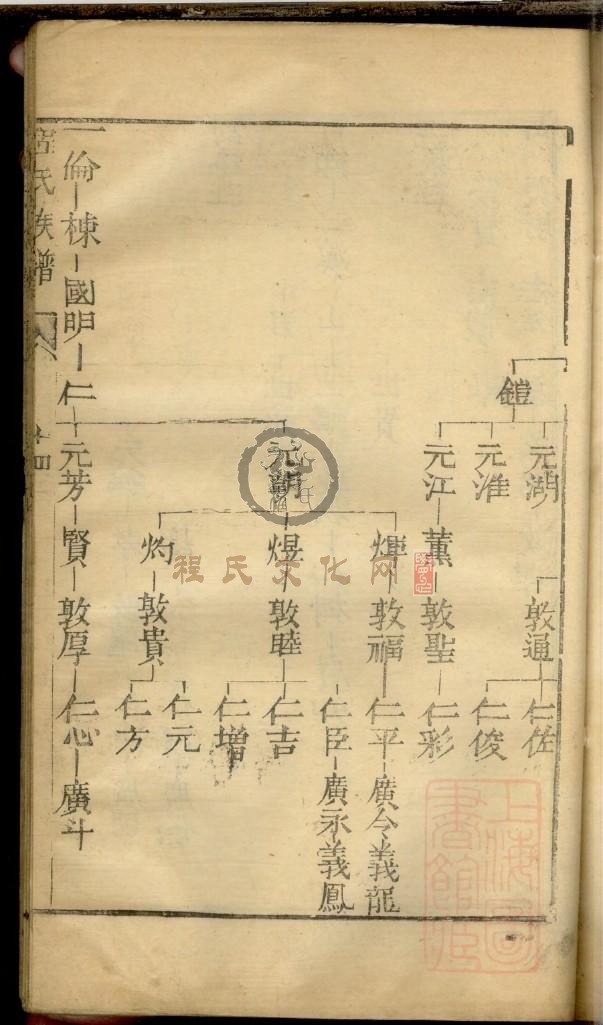 鎧
元湖
敦通
仁佐
元淮
仁俊
元江 薰 敦聖 仁彩
敦福 仁平 廣今 義龍
仁臣 廣永 義鳳
煜 敦睦 仁吉
仁增
灼 敦貴
仁元
仁方
一倫 棟 國明 仁 元芳 賢 敦厚 仁心 廣斗
程氏族譜
十四
程氏文化网
上海圖書館藏